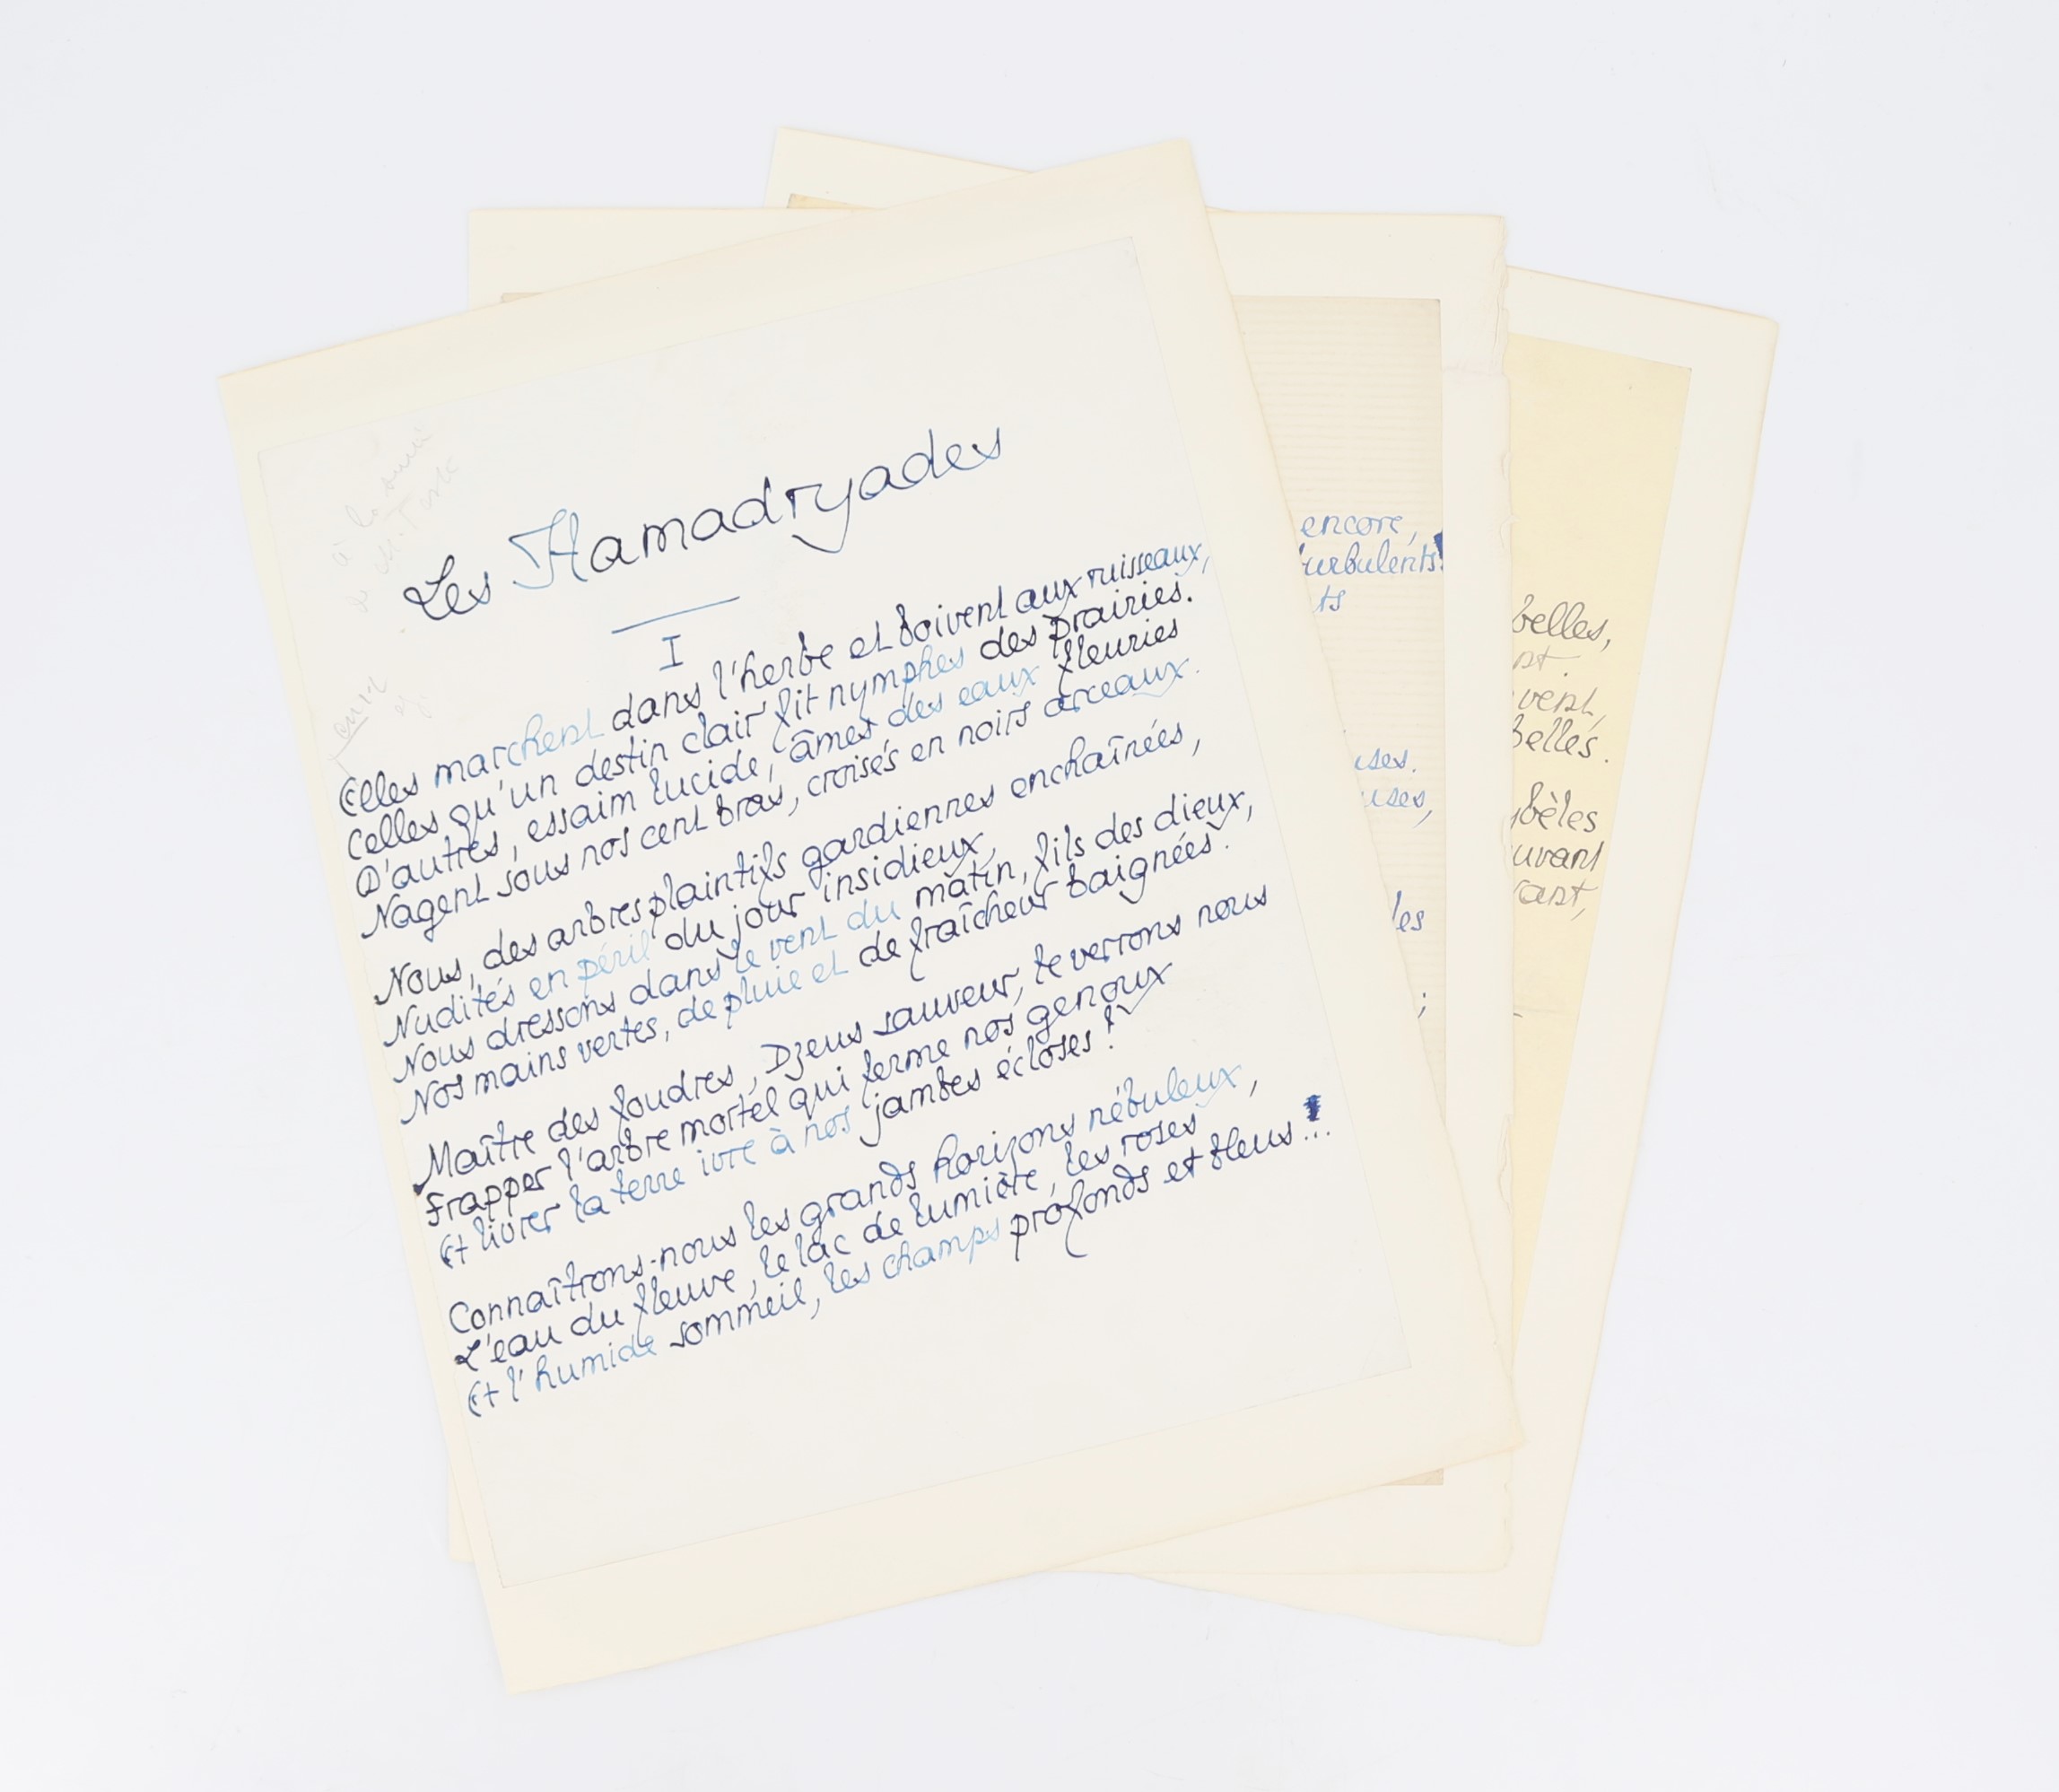 Les Hamadryades
I
Elles marchent dans l'herbe et boivent aux ruisseaux,
Celles qu'un destin clair fit nymphes des prairies.
D'autres, essaim lucide, âmes des eaux fleuries
Nagent sous nos cent bras, croisés en noirs arceaux.
Nous, des arbres plaintifs gardiennes enchaînées,
Nudités en péril du jour insidieux,
Nous dressons dans le vent du matin, fils des dieux,
Nos mains vertes, de pluie et de fraîcheur baignées.
Maître des foudres, Dzeus sauveur, te verrons nous
Frapper l'arbre mortel qui ferme nos genoux
Et livrer la terre ivre à nos jambes écloses!
Connaîtrons-nous les grands horizons nébuleux,
L'eau du fleuve, le lac de lumière, les roses
Et l'humide sommeil, les champs profonds et bleus...
encore,
turbulents
ts
uses.
uses,
les
;
belles,
nt.
vent,
belles.
ybèles
uvant
ant,